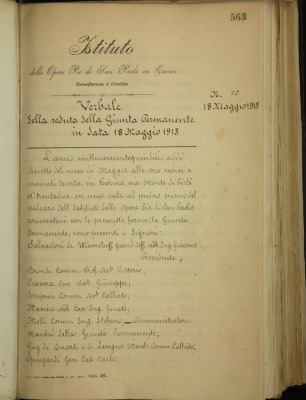 563
Istituto
delle Opere Pie di San Paolo in Torino
Beneficenza e Credito
Verbale
della seduta della Giunta Permanente
in data 18 Maggio 1915
N. 12
18 Maggio 1915
L'anno millenovecentoquindici, addì
diciotto del mese di Maggio alle ore sedici e
minuti trenta, in Torino, via Monte di Pietà
N° trentadue, in una sala al primo piano del
palazzo dell'Istituto delle Opere Pie di San Paolo,
convocatasi con le prescritte forme la Giunta
Permanente, sono presenti i Signori:
Salvadori di Wiesenhoff Grand'Uff. Nob. Ing. Giacomo
Presidente;
Brondi Comm. Prof. Avv. Vittorio,
Cravosa Cav. Avv. Giuseppe;
Emprin Comm. Avv. Callisto;
Marsino Nob. Cav. Ing. Giusto;
Molli Comm. Ing. Stefano; Amministratori
Membri della Giunta Permanente;
Gay di Quarti e di Lesegno March. Comm. Callisto;
Spingardi Gen. Cav. Carlo;